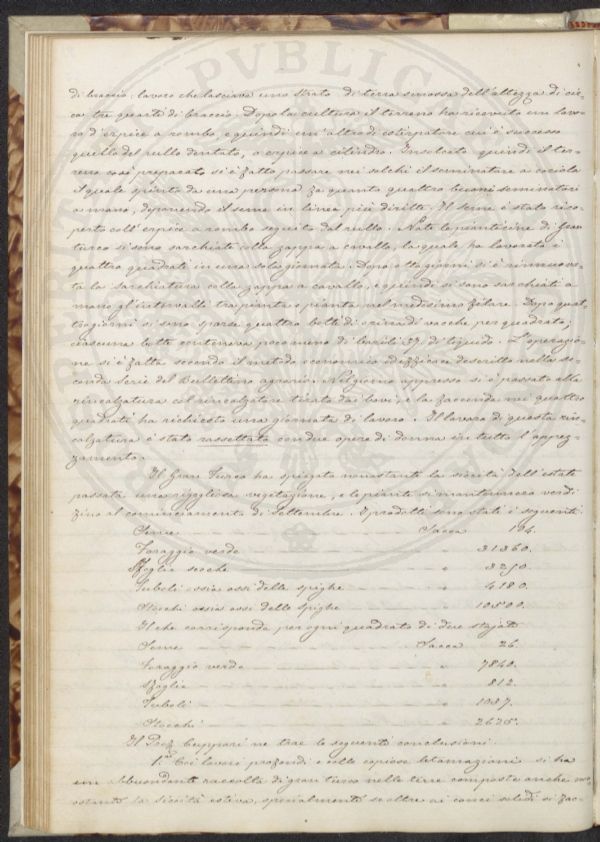 di braccio, lavoro che lasciava uno strato di terra smossa dell'altezza di cir-
ca tre quarti di braccio. Dopo la cultura il terreno ha ricevuto un lavo-
ro d'erpice a rombo, e quindi un'altro di estirpatore cui è successo
quello del rullo dentato, o erpice a cilindro. Insolcato quindi il ter-
reno così preparato si è fatto passare nei solchi il seminatore a
il quale spinto da una persona fa quanto quattro buoni seminatori
a mano, deponendo il seme in linee più diritte. Il seme è stato rico-
perto coll'erpice a rombo seguito dal rullo. Nate le pianticine di Gran
turco si sono sarchiate colla zappa a cavallo, la quale ha lavorato i
quattro quadrati in una sola giornata. Dopo otto giorni si è rinnuova-
ta la sarchiatura colla zappa a cavallo, e quindi si sono sarchiati a
mano gl'intervalli tra pianta e pianta nel medesimo filare. Dopo quat-
tro giorni si sono sparse quattro botti di orina di vacche per quadrato;
ciascuna botte conteneva poco meno di barili 27. di liquido. L'operazio-
ne si è fatta secondo il metodo economico ed efficace descritto nella se-
conda serie del Bullettino agrario. Nel giorno appresso si è passato alla
rincalzatura col rincalzatore tirato dai bovi, e la faccenda nei quattro
quadrati ha richiesto una giornata di lavoro. Il lavoro di questa rin-
calzatura è stato rassettato con due opere di donna in tutto l'appez-
zamento.
Il Gran Turco ha spiegato nonostante la siccità dell'estate
passata una rigogliosa vegetazione, e le piante si mantennero verdi
fino al cominciamento di Settembre. I prodotti sono stati i seguenti
Seme Sacca 104.
Foraggio verde " 31360.
Sfoglie secche " 3250.
Tuboli ossia ossi delle spighe " 4180.
Stocchi ossia ossi delle spighe " 10500.
Il che corrisponde per ogni quadrato di dieci stajate
Seme Sacca 26.
Foraggio verde " 7840.
Sfoglie " 812.
Tuboli " 1037.
Stocchi " 2625.
Il Prof. Cuppari ne trae le seguenti conclusioni
1.mo Coi lavori profondi e colle copiose letamazioni si ha
un abbondante raccolta di gran turco nelle terre composte anche no-
ostante la siccità estiva, specialmente se oltre ai conci solidi si fac-